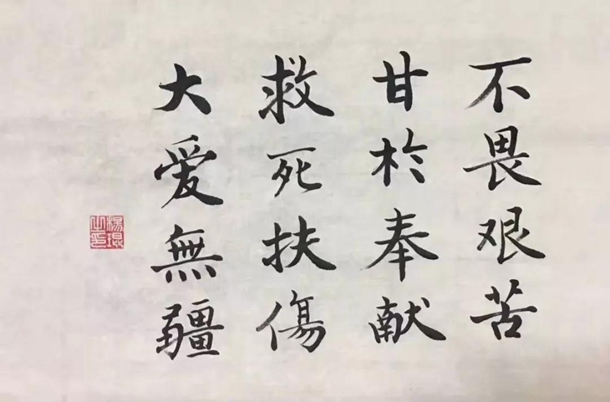 不畏艰苦
甘於奉献
救死扶傷
大爱無疆